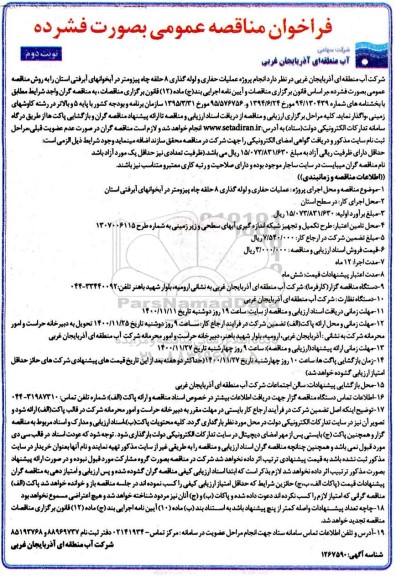 فراخوان مناقصه عمومی بصورت فشرده
شرکت سهامی
آب منطقه‌ای آذربایجان غربی
نوبت دوم
شرکت آب منطقه ای آذربایجان غربی در نظر دارد انجام پروژه عملیات حفاری و لوله گذاری ۸ حلقه چاه پیزومتر در آبخوانهای آبرفتی استان را به روش مناقصه
عمومی بصورت فشرده بر اساس قانون برگزاری مناقصات و آیین نامه اجرایی بند(ج) ماده (۱۲) قانون برگزاری مناقصات، به مناقصه گران واجد شرایط مطابق
با بخشنامه های شماره ۹۴/۱۳۰۴۳۹ مورخ ۱۳۹۴/۶/۲۴ و ۹۵/۵۷۶۷۵۶ مورخ ۱۳۹۵/۳/۳۱ سازمان برنامه و بودجه کشور با پایه ۵ و بالاتر در رشته کاوشهای
زمینی واگذار نماید. کلیه مراحل برگزاری ارزیابی و مناقصه از دریافت اسناد ارزیابی و مناقصه تا ارائه پیشنهاد مناقصه گران و بازگشایی پاکت ها از طریق درگاه
سامانه تدارکات الکترونیکی دولت(ستاد) به آدرس www.setadiran.ir انجام خواهد شد و لازم است مناقصه گران در صورت عدم عضویت قبلی،مراحل
ثبت نام سایت مذکور و دریافت گواهی امضای الکترونیکی را جهت شرکت در مناقصه محقق سازند.اضافه مینماید وجود شرایط ذیل الزمی است:
حداقل دارای ظرفیت ریالی آزاد به مبلغ ۱۵/۰۷۳/۸۳۱/۶۳۰ ریال می باشد.(ظرفیت تعدادی نیز حداقل یک مورد آزاد باشد
نام مناقصه گران میبایست در سایت ساجار موجود بوده و دارای صلاحیت و رتبه کاری معتبر و متناسب نیز باشند.
((اطلاعات مناقصه و زمانبندی))
۱-موضوع مناقصه و محل اجرای پروژه : عملیات حفاری و لوله گذاری ۸ حلقه چاه پیزومتر در آبخوانهای آبرفتی استان
۲-محل اجرای کار: در سطح استان
۳-مبلغ برآورد اولیه: ۱۵/۰۷۳/۸۳۱/۶۳۰ ریال
۴-محل تامین اعتبار: طرح تکمیل و تجهیز شبکه اندازه گیری آبهای سطحی و زیر زمینی به شماره طرح ۱۳۰۷۰۰۶۱۱۵
۵-مبلغ تضمین شرکت در ارجاع کار: ۷/۵۴۰/۰۰۰ ریال
۶-قیمت فروش اسناد ارزیابی و مناقصه: ۳/۰۰۰/۰۰۰ ریال
۷-مدت اجرا: ۱۲ ماه
۸-مدت اعتبار پیشنهادات قیمت: شش ماه
۹-دستگاه مناقصه گزار(کارفرما): شرکت آب منطقه ای آذربایجان غربی به نشانی ارومیه، بلوار شهید باهنر تلفن: ۳۳۴۴۰۰۹۲-۰۴۴
۱۰-دستگاه نظارت : شرکت آب منطقه ای آذربایجان غربی
۱۱-مهلت زمانی دریافت اسناد ارزیابی و مناقصه از سایت: ساعت ۱۹ روز دوشنبه تاریخ ۱۴۰۰/۱۱/۱۱
۱۲-مهلت زمانی و محل ارائه پاکت(الف) تضمین شرکت در فرایند ارجاع کار: ساعت ۹ روز دوشنبه تاریخ ۱۴۰۰/۱۱/۲۵ تحویل به دبیرخانه حراست و امور
محرمانه شرکت به نشانی : آذربایجان غربی، ارومیه، بلوار شهید باهنر، دبیرخانه حراست و امور محرمانه شرکت آب منطقه ای آذربایجان غربی
۱۳-مهلت زمانی ارائه پیشنهادات(ارزیابی و مناقصه): ساعت ۹ روز چهارشنبه تاریخ ۱۴۰۰/۱۱/۲۷
۱۴-زمان بازگشایی پاکت ها: ساعت ۱۰ روز چهارشنبه تاریخ ۱۴۰۰/۱۱/۲۷(حداکثر دو هفته بعد از این تاریخ قیمت های پیشنهادی شرکت های حائز حداقل
امتیاز ارزیابی گشوده خواهد شد.)
۱۵-محل بازگشایی پیشنهادات: سالن اجتماعات شرکت آب منطقه ای آذربایجان غربی
۱۶-اطلاعات تماس دستگاه مناقصه گزار جهت دریافت اطلاعات بیشتر در خصوص اسناد مناقصه و ارائه پاکت (الف): شماره تلفن تماس: ۳۱۹۸۷۳۰۰-۰۴۴
۱۷-توضیح اینکه اصل تضمین شرکت در فرآیند ارجاع کار بایستی در مهلت مقرر به دبیرخانه حراست و امور محرمانه شرکت در قالب پاکت(الف) ارائه شود و
تصویر آن نیز در سایت تدارکات الکترونیکی دولت در محل مورد نظر بارگذاری گردد. کلیه محتویات پاکت(ب)،اسناد ارزیابی و مدارک و اسناد مربوط به مناقصه
گزار و همچنین پاکت (ج) بایستی پس از مهر امضای دیجیتال در سایت تدارکات الکترونیکی دولت بارگذاری شود . توجه شود که عودت اسناد در قالب سی دی
مورد قبول نمی باشد و همچنین چنانچه مناقصه گران اسناد ارزیابی و مناقصه را به طریقی غیر از سایت مذکور تهیه نمایند و نام آنها بعنوان خریدار در سایت
مذکور ثبت نشده باشد به قیمت پیشنهادی ترتیب اثر داده نخواهد شد شرکت در مناقصه بصورت گروه مشارکت مورد قبول نبوده و در صورت ارائه پیشنهاد
بصورت مذکور ترتیب اثر داده نخواهد شد لازم بذکر است که ابتدا اسناد ارزیابی کیفی مناقصه گران گشوده شده و پس ارزیابی و امتیاز دهی به مناقصه گران
پیشنهادات قیمت (پاکات الف،ب،ج) حائزین شرایط که حداقل امتیاز ارزیابی کیفی را کسب نموده اند در جلسه مناقصه باز و خوانده خواهد شد پاکت (الف)
مناقصه گرانی که امتیاز لازم را کسب نکرده اند دعوت داده شده و پاکات (ب) و (ج) آنان نیز مردود شناخته خواهد شد و هیچ اعتراضی مسموع نخواهد بود
۱۸-چناچه تعداد پیشنهادات واصله کمتر از پنج پیشنهاد باشد به استناد بند (ب) ماده (۱۰) آیین نامه اجرایی بند (ج) ماده (۱۲) قانون برگزاری مناقصات
مناقصه تجدید خواهد شد.
۱۹-آدرس و تلفن اطلاعات تماس سامانه ستاد جهت انجام مراحل عضویت در سامانه : مرکز تماس ۴۱۹۳۴-۰۲۱ دفتر ثبت نام ۸۸۹۶۹۷۳۷ و ۸۵۱۹۳۷۶۸
شناسه آگهی: ۱۲۶۷۵۹۰
شرکت آب منطقه ای آذربایجان غربی